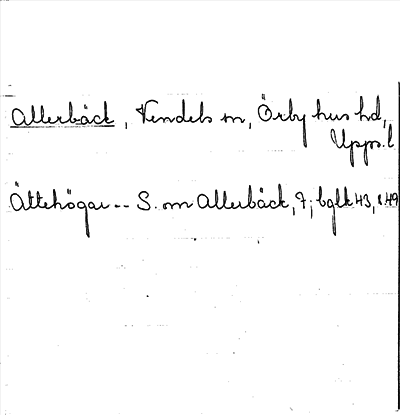 Allerbäck, Vendels sn, Örbyhus hd,
Upps. l
Ättehögar -- S. om Allerbäck, 7; bglk 43, s. 49